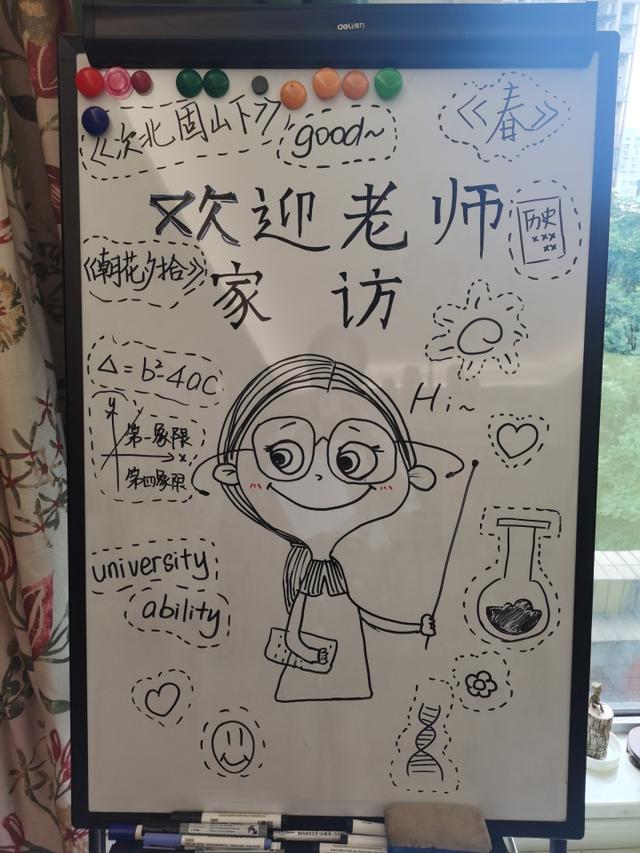 deli得力
《次北固山下》
good~
《春》
欢迎老师
历史
×××
××
《朝花夕拾》
家访
Δ=b²-4ac
Hi~
y
第一象限
x
第四象限
university
ability